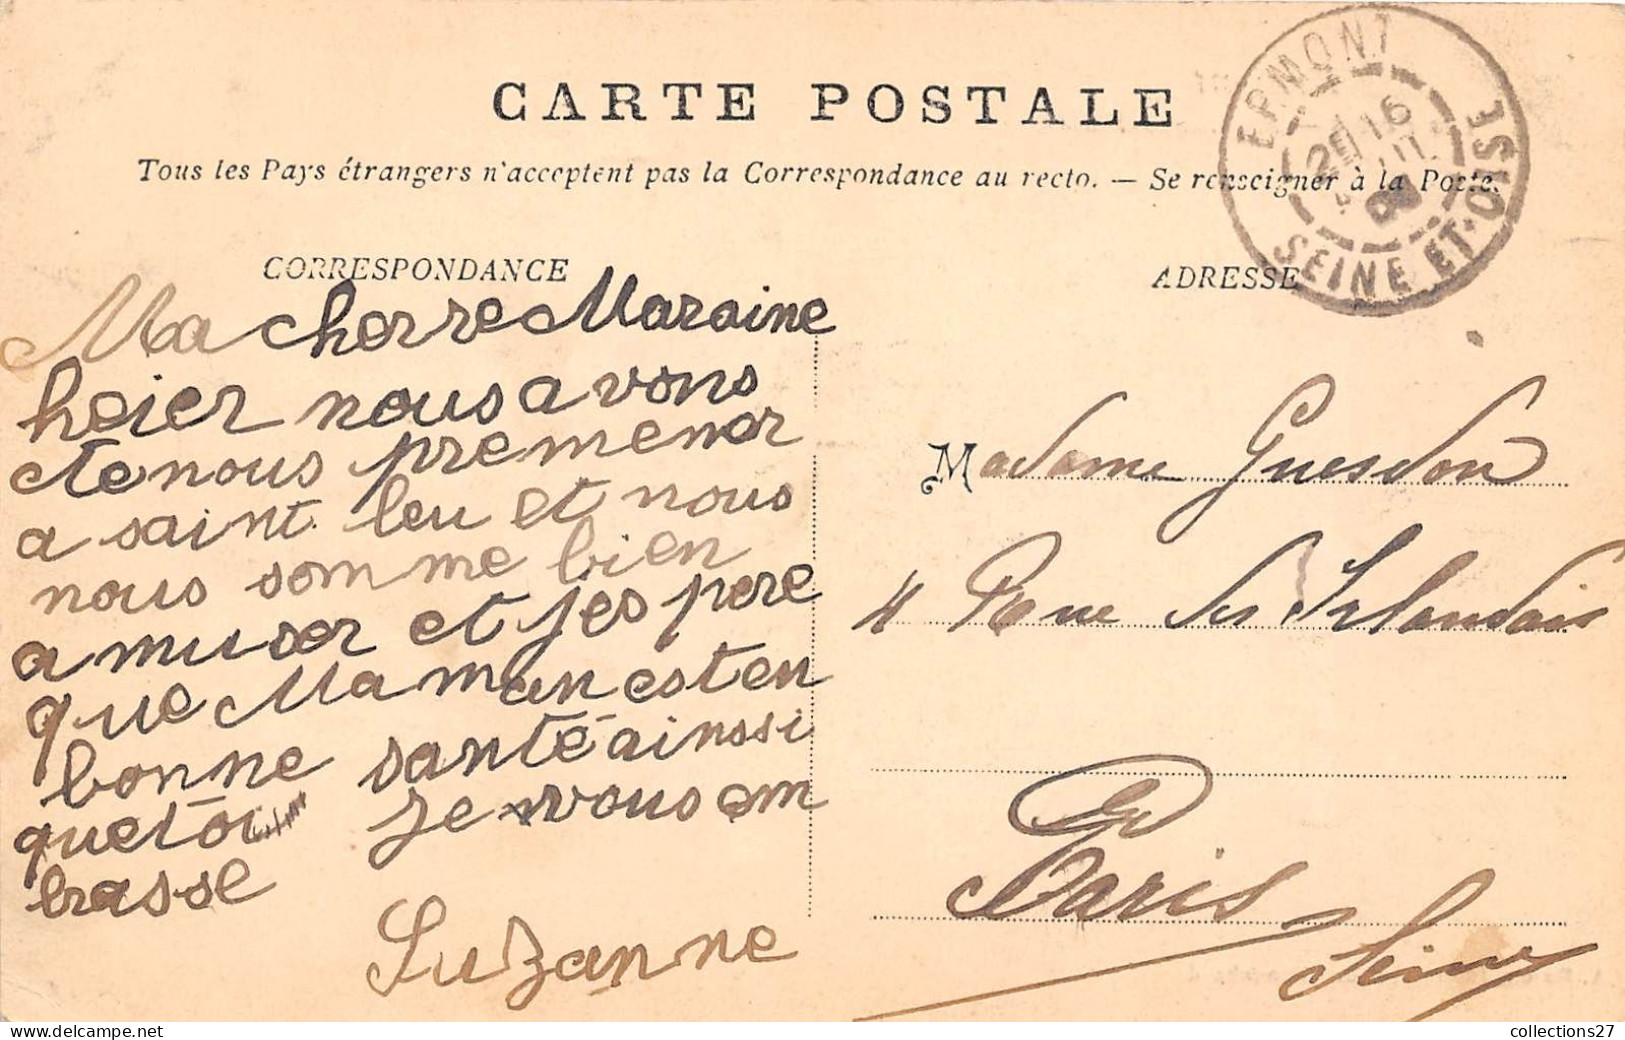 CARTE POSTALE
Tous les Pays étrangers n'acceptent pas la Correspondance au recto. — Se renseigner à la Poste.
ERMONT
16
SEINE-ET-OISE
CORRESPONDANCE
Ma cherre Maraine
heier nous avons
ete nous premener
a saint leu et nous
nous somme bien
amuser et jespere
que Maman est en
bonne santé ainssi
que toi je vous em
brasse
Suzanne
ADRESSE
Madame Guesdon
4 Rue des Irlandais
Paris
Seine
collections27